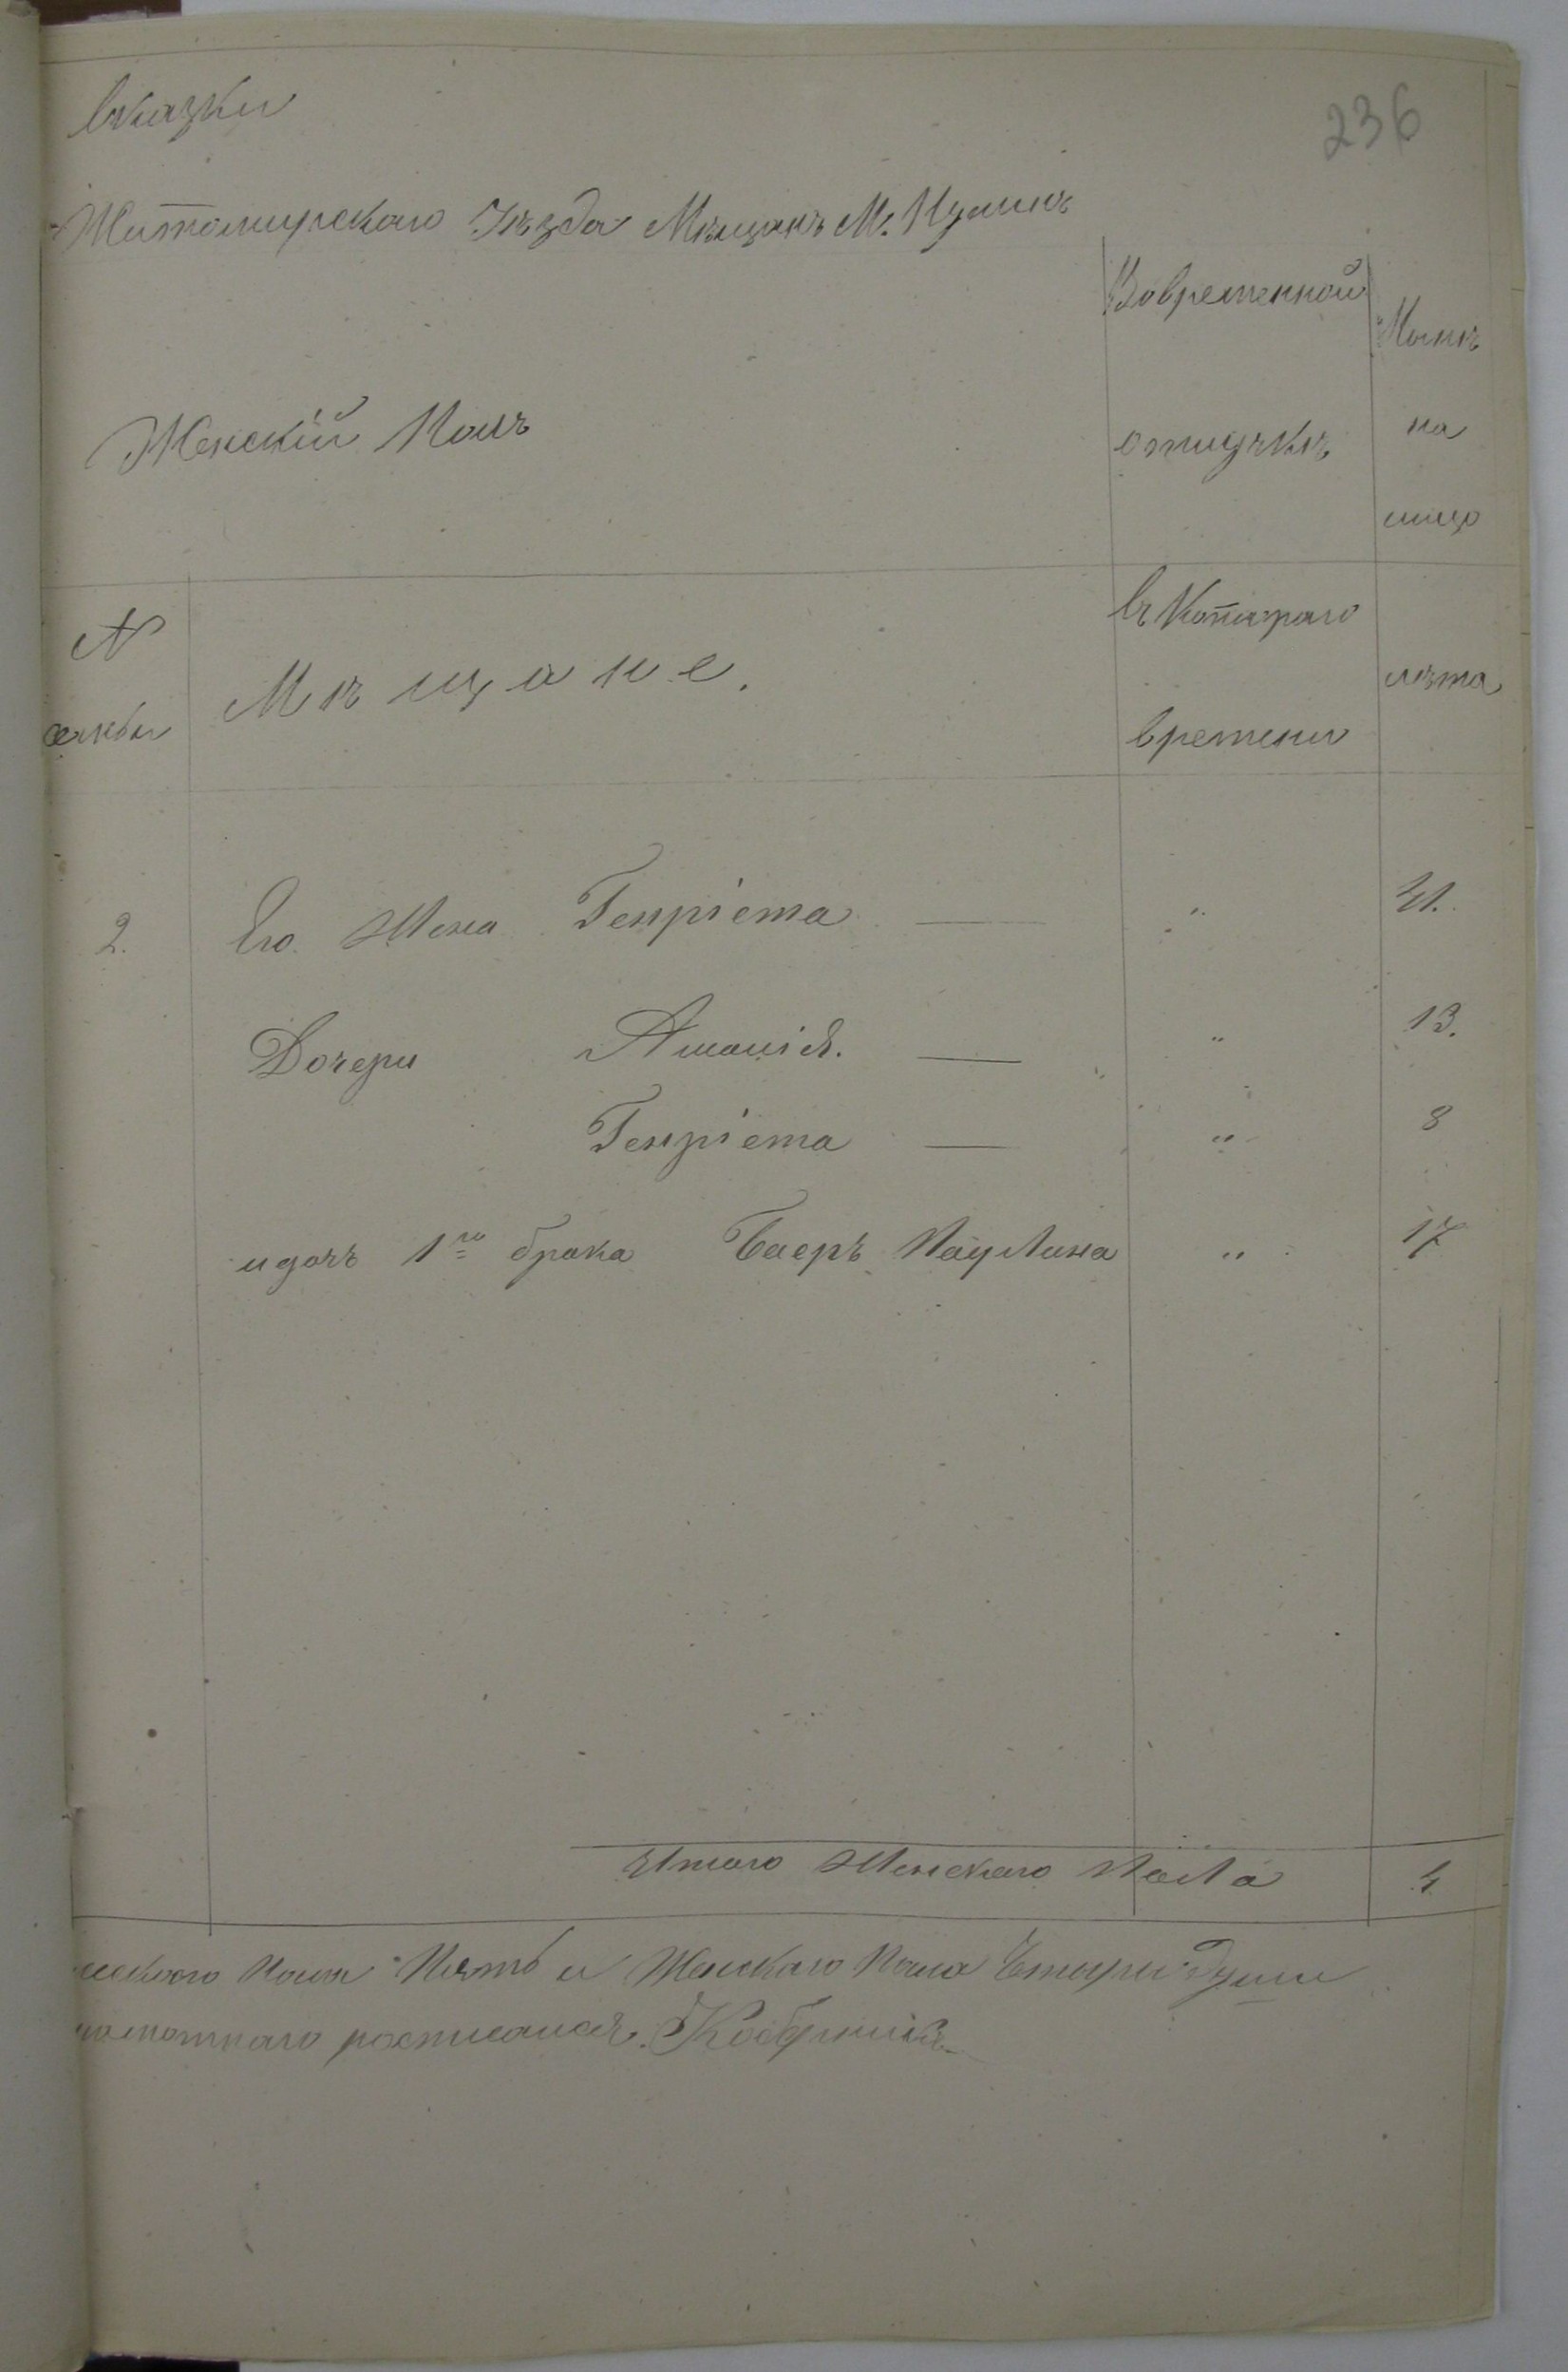 сказки
236
Житомирскаго Уѣзда Мѣщанъ М.
Женскій Полъ
Вовременной
отлучкѣ
Нынѣ
на
лицо
№
семьи
Мѣщане.
съ Котораго
времени
лѣта
2. Его Жена Генріета — " 41.
Дочери Амалія. — " 13.
Генріета — " 8
и дочъ 1го брака Баеръ Паулина " 17
Итого Женскаго Пола 4
ескаго Пола Пять и Женскаго Пола Четыри души
росписался.